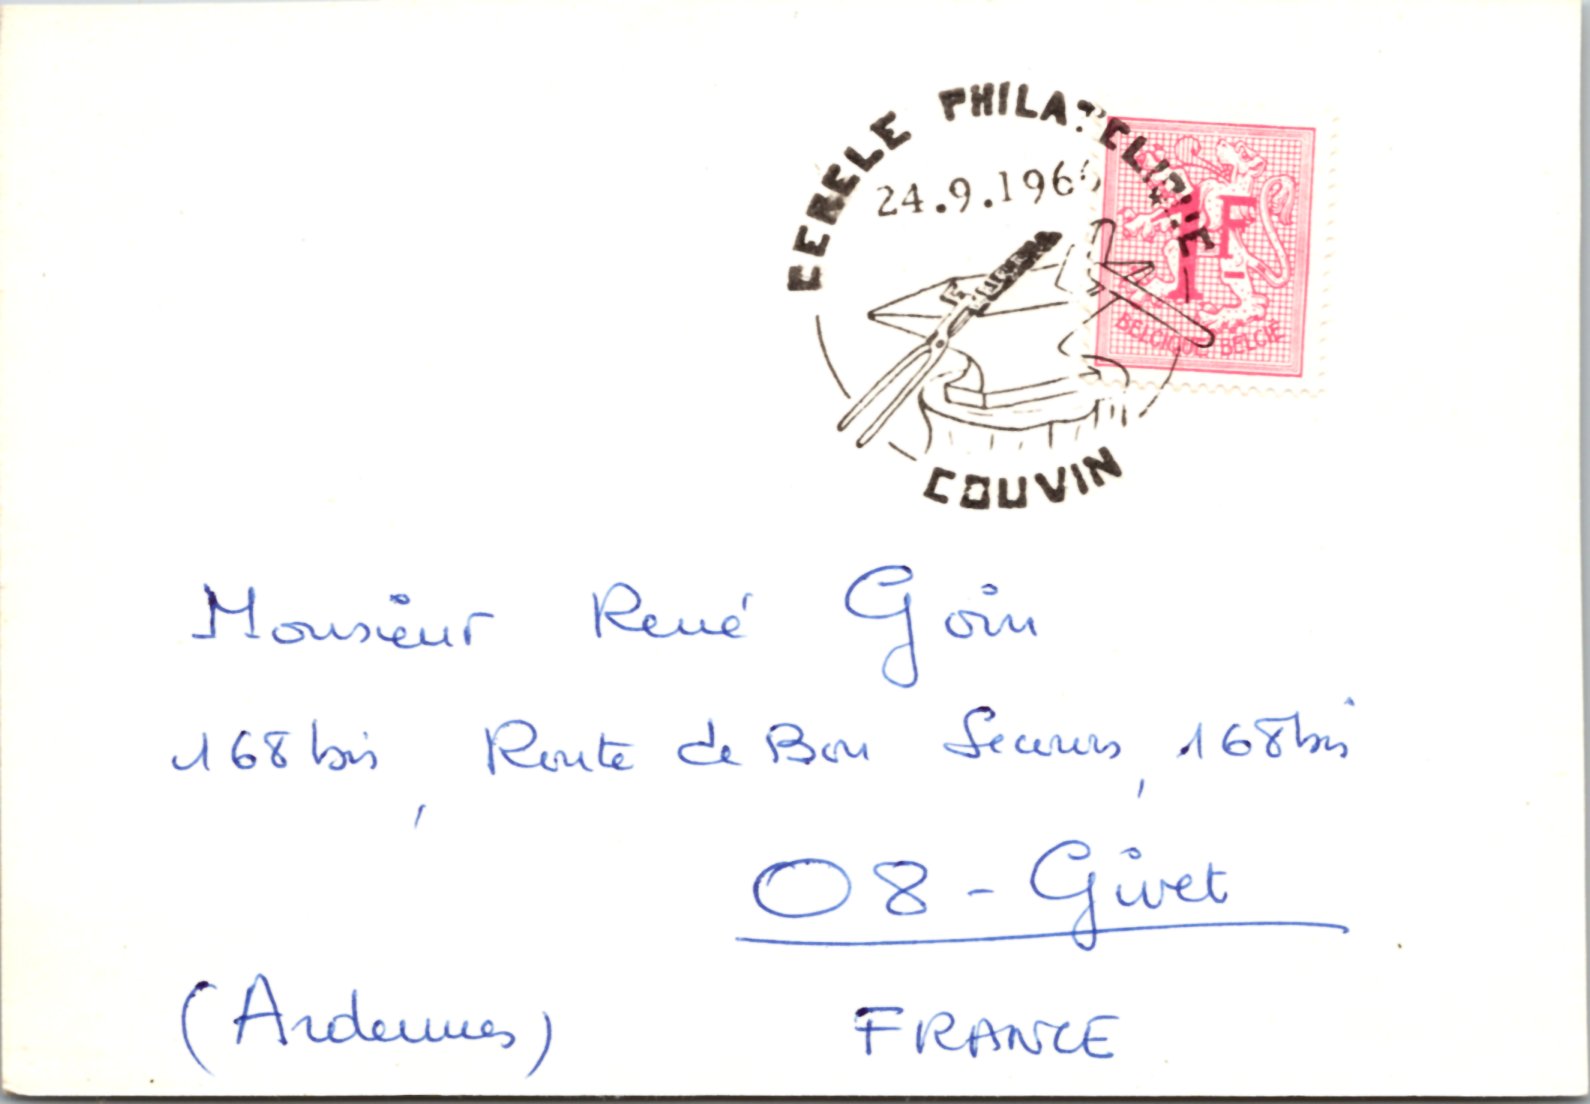 CERCLE PHILATELIQUE
24.9.1966
1F
BELGIQUE BELGIË
COUVIN
Monsieur René Goin
168 bis, Route de Bon Secours, 168 bis
08 - Givet
(Ardennes) FRANCE